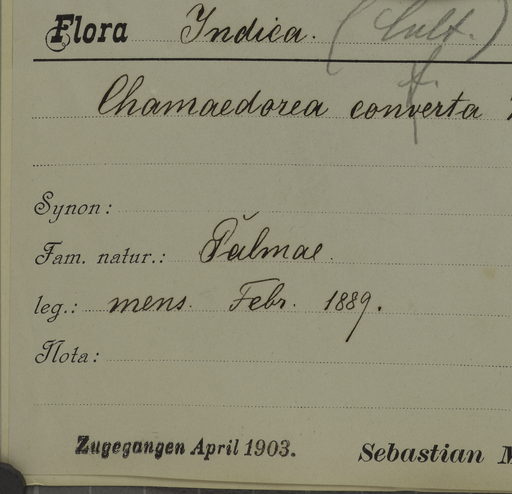 Flora Indica. (Cult.)
Chamaedorea converta
Synon:
Fam. natur.: Palmae.
leg.: mens. Febr. 1889.
Nota:
Zugegangen April 1903. Sebastian M